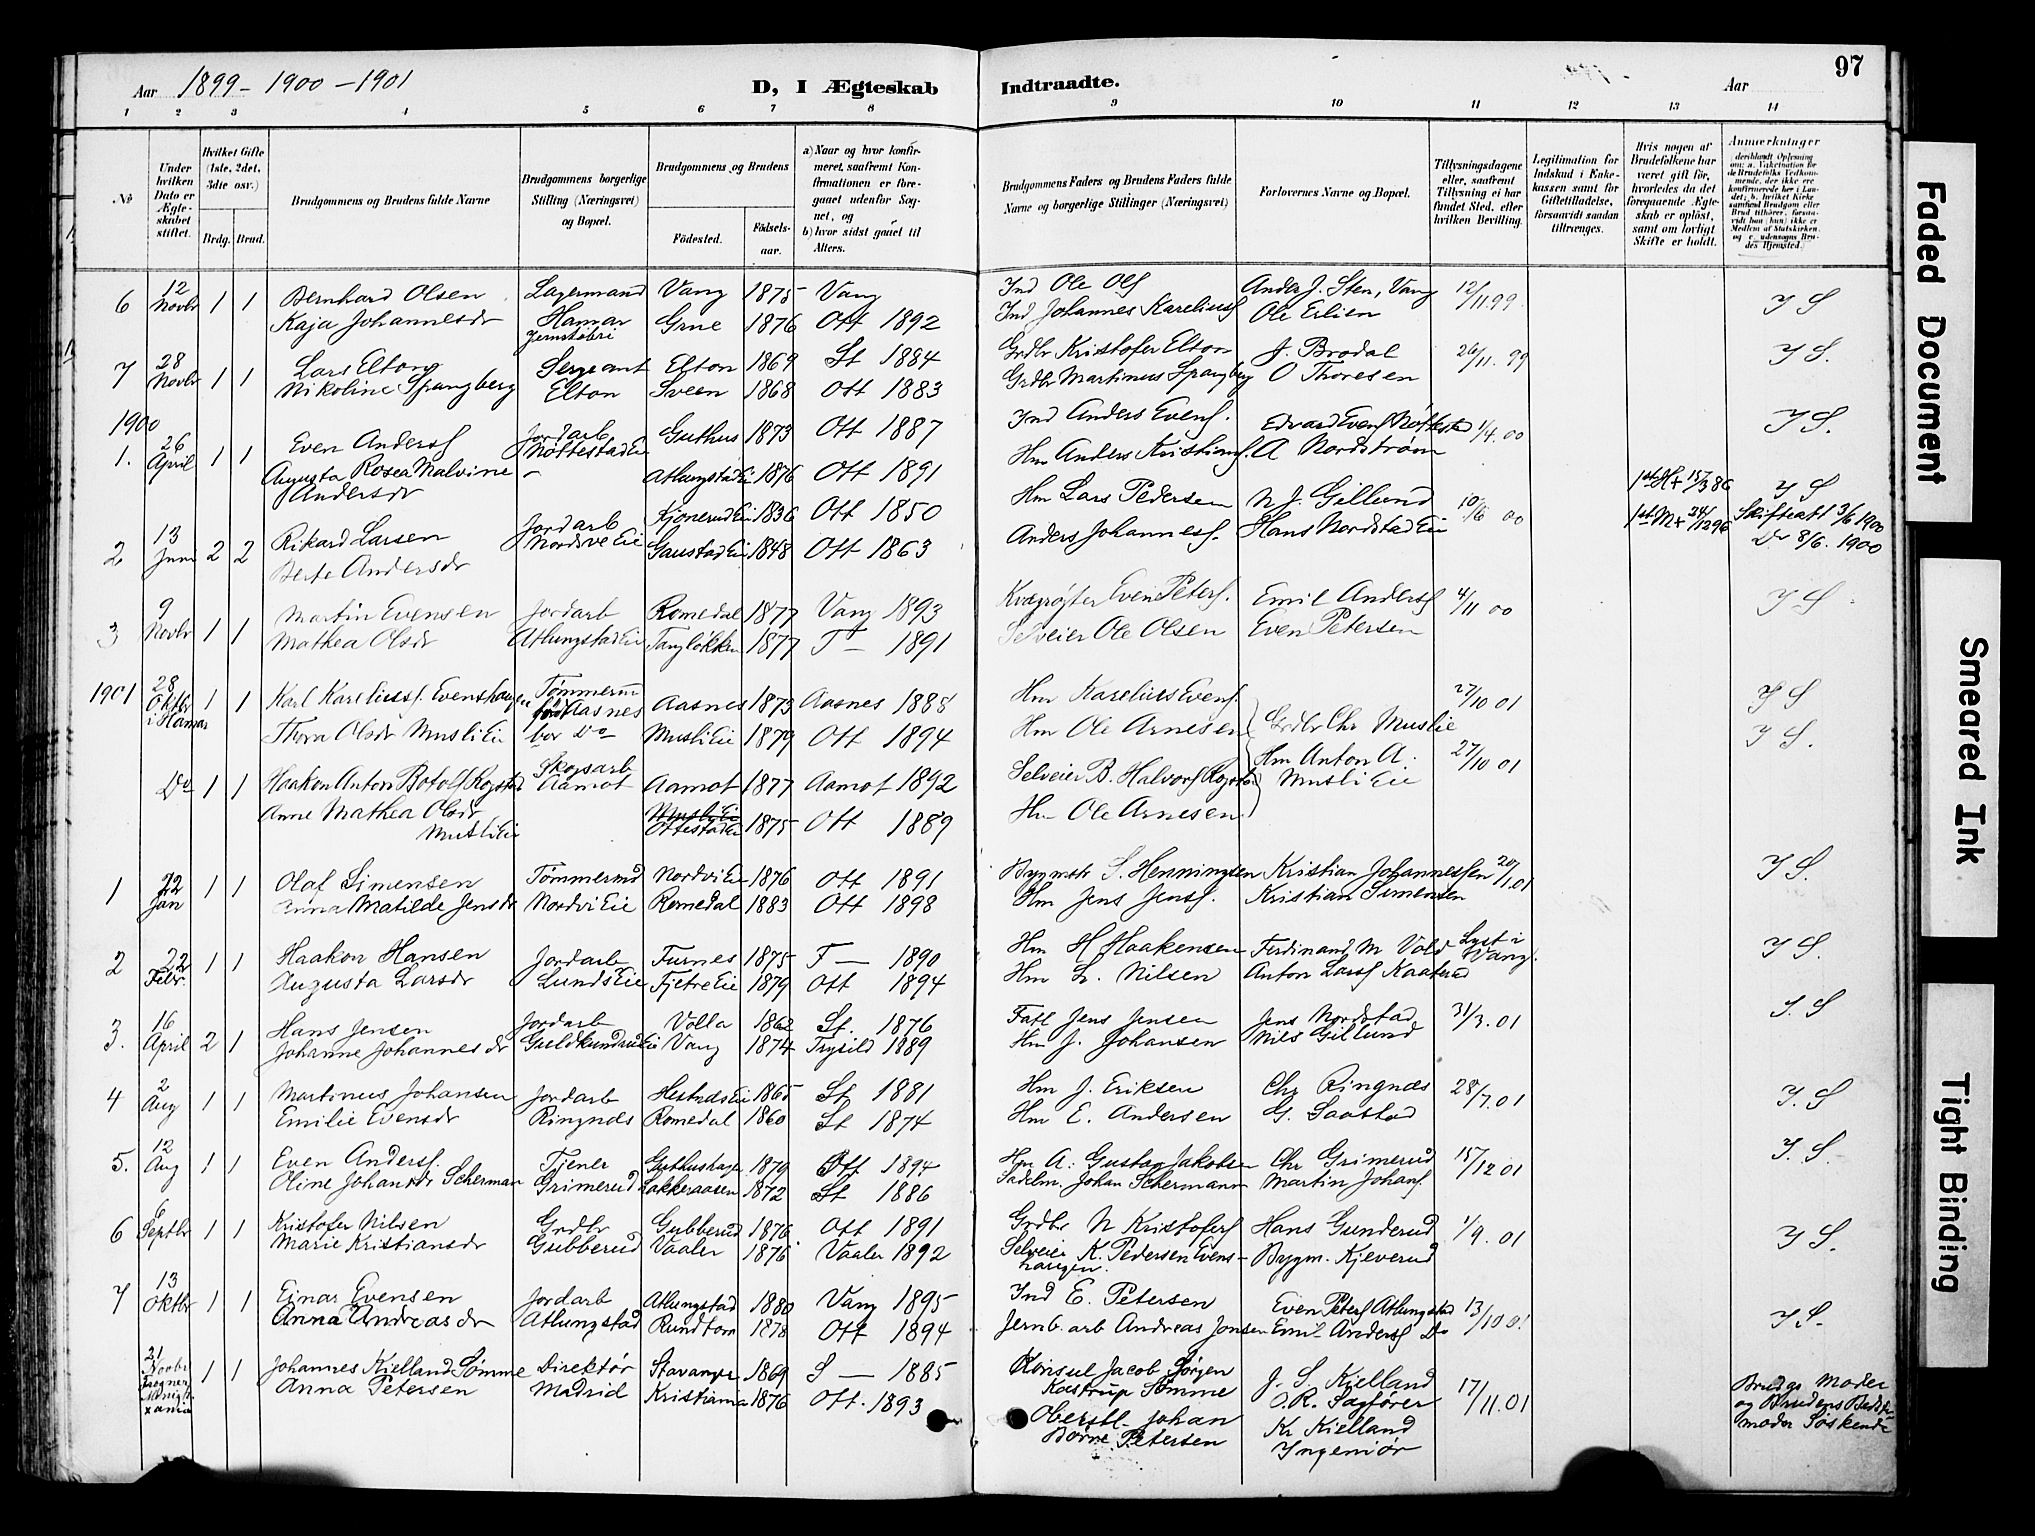 Aar 1899 - 1900 - 1901
D, I Ægteskab
Indtraadte.
Aar
97
1 2 3 4 5 6 7 8 9 10 11 12 13 14
№
Under hvilken Dato er Ægteskabet stiftet.
Hvilket Gifte (1ste, 2det, 3die osv.)
Brdg. Brud.
Brudgommens og Brudens fulde Navne
Brudgommens borgerlige Stilling (Næringsvei) og Bopæl.
Brudgommens og Brudens
Fødested.
Fødselsaar.
a) Naar og hvor konfirmeret, saafremt Konfirmationen er foregaaet udenfor Sognet, og
b) hvor sidst gaaet til Alters.
Brudgommens Faders og Brudens Faders fulde Navne og borgerlige Stillinger (Næringsvei)
Forlovernes Navne og Bopæl.
Tillysningsdagene eller, saafremt Tillysning ei har fundet Sted, efter hvilken Bevilling.
Legitimation for Indskud i Enkekassen samt for Giftetilladelse, forsaavidt saadan tiltrænges.
Hvis nogen af Brudefolkene har været gift før, hvorledes da det foregaaende Ægteskab er opløst, samt om lovligt Skifte er holdt.
Anmærkninger
6 12 Novbr 1 1 Bernhard Olsen Lagermand Vang 1875 Vang Ind Ole Ols Anders J. Sten, Vang 12/11.99 I S
Kaja Johannesdr Hamar Grue 1876 Ott 1892 Ind Johannes Kareliuss Ole Eilien
7 28 Novbr 1 1 Lars Elton Sergeant Elton 1869 St 1884 Grdbr Kristofer Elton J. Brodal 26/11.99 I S.
Nikoline Spangberg Elton Sveen 1868 Ott 1883 Grdbr Martinus Spangberg O Thoresen
1900
1. 26 April 1 1 Even Anderss Jordarb Guthus 1873 Ott 1887 Ind Anders Evens. Edvard Evens Nøttestad 1/4.00 I S.
Nøttestad Ei
Augusta Rosea Malvine Andersdr Atlungstad Ei 1876 Ott 1891 Hm Anders Kristians. A Nordstrøm
2 13 Juni 2 2 Rikard Larsen Jordarb Kjonerud Ei 1836 Ott 1850 Hm Lars Pedersen N J. Gillund 10/6 00 1st H + 15/3 86 I S
Berte Andersdr Nordsve Eie Gaustad Ei 1848 Ott 1863 Anders Johanness. Hans Nordstad Eie 1st M + 24/12 96 Skifteatt 3/6 1900
Do 8/6. 1900
3 9 Novbr 1 1 Martin Evensen Jordarb Romedal 1877 Vang 1893 Kvægrøgter Even Peters. Emil Anderss 4/11 00 I S
Mathea Olsdr Atlungstad Eie Tangløkken 1877 T — 1891 Selveier Ole Olsen Even Petersen
1901 28 Oktbr i Hamar 1 1 Karl Kareliuss. Evenshaugen Tømmerm Aasnes 1873 Aasnes 1888 Hm Karelius Evens. 27/10 01 I S
Aasnes
Thora Olsdr Musli Eie bor Do Musli Eie 1879 Ott 1894 Hm Ole Arnesen Grdbr Chr Muslie I S.
Do 1 1 Haakon Anton Botolfs Rogstad Skogsarb Aamot Aamot 1877 Aamot 1892 Selveier B. Halvors Rogstad Hm Anton A: Musli Eie 27/10 01
Anne Mathea Olsdr Musli Eie Ottestad Ei 1875 Ott 1889 Hm Ole Arnesen
1 22 Jan 1 1 Olaf Simensen Tømmermd Nordvi Eie 1876 Ott 1891 Bygmstr S. Henningsen Kristian Johannessen 20/1.01 I S.
Anna Matilde Jensdr Nordvi Eie Romedal 1883 Ott 1898 Hm Jens Jenss. Kristian Simensen
2 22 Febr. 1 1 Haakon Hansen Jordarb Furnes 1875 F — 1890 Hm H Haakensen Ferdinand M Vold Lyst i Vang. I S.
Augusta Larsdr Lunds Eie Fjetre Eie 1879 Ott 1894 Hm L. Nilsen Anton Larss Kaaterud
3. 16 April 2 1 Hans Jensen Jordarb Volla 1862 St. 1876 Fatl Jens Jensen Jens Nordstad 31/3.01 I. S
Johanne Johannesdr Guldkundrud Ei Vang 1874 Trysild 1889 Hm J. Johansen Nils Gillund
4 2 Aug 1 1 Martinus Johansen Jordarb Hestnæs Ei 1865 St 1881 Hm J. Eriksen Chr Ringnæs 28/7.01 I. S
Emilie Evensdr Ringnæs Romedal 1860 St 1874 Hm E. Andersen G. Saastad
5. 12 Aug 1 1 Even Anderss. Tjener Guthushagen 1870 Ott 1894 Hm A: Gustav Jakobsen Chr Grimerud 15/12 01 I. S.
Oline Johansdr Scherman Grimerud Bakkeraasen 1872 St 1886 Sadelm. Johan Schermann Martin Johans.
6 6 Septbr 1 1 Kristofer Nilsen Grdbr Gubberud 1876 Ott 1891 Grdbr N Kristofers Hans Gunderud 1/9.01 I S.
Marie Kristiansdr Gubberud Vaaler 1876 Vaaler 1892 Selveier K. Pedersen Evenshaugen. Bygm. Kjeverud
7 13 Oktbr 1 1 Einar Evensen Jordarb Atlungstad 1880 Vang 1895 Ind E. Petersen Even Peters Atlungstad 13/10 01 I S.
Anna Andreasdr Atlungstad Rundtom 1878 Ott 1894 Jernb. arb Andreas Jonsen Emil Anderss Do
21 Novbr Frogner Menigh. Xania 1 1 Johannes Kielland Sømme Direktør Stavanger 1869 S — 1885 Konsul Jacob Jørgen Kastrup Sømme J. S. Kielland 17/11.01 Brudgs Moder
Anna Petersen Madrid Kristiania 1876 Ott. 1893 Oberstl. Johan Børre Petersen O.R. Sagfører og Brudens Bestemoder Søskende
Kr Kielland
Ingeniør
Faded Document
Smeared Ink
Tight Binding